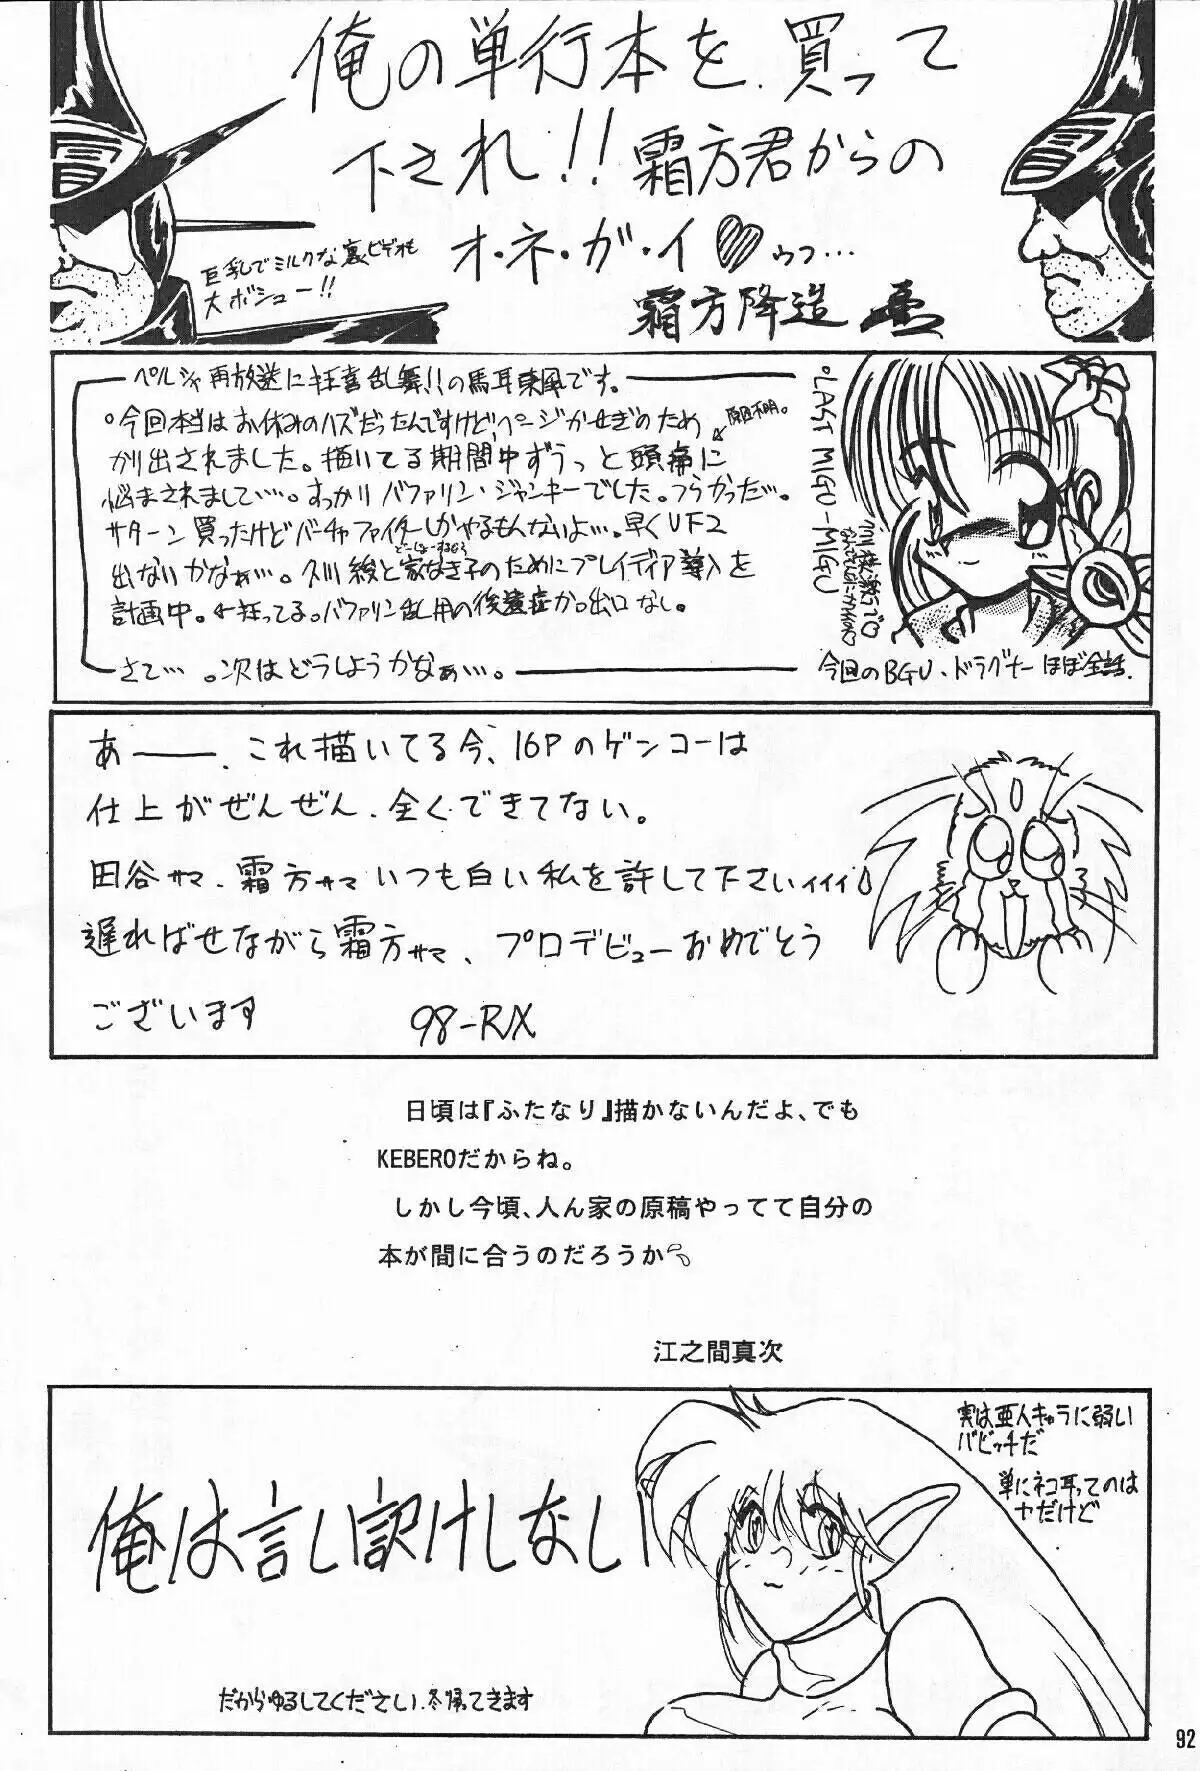 俺の単行本を、買って
下され!!霜方君からの
オ・ネ・ガ・イ♡ゥフ…
巨乳でミルクな裏ビデオも
大ボシュー!!
霜方降造
ペルシャ再放送に狂喜乱舞!!の馬耳東風です。
○今回本当はお休みのハズだったんですけどページかせぎのため
かり出されました。描いてる期間中ずうっと頭痛に
原因不明。
悩まされまして…。すっかりバファリン・ジャンキーでした。つらかった…。
サターン買ったけどバーチャファイターしかやるもんないよ…。早くVF2
出ないかなぁ…。 綾と家なき子のためにプレイディア導入を
計画中。←狂ってる。バファリン乱用の後遺症か。出口なし。
さて…。次はどうしようかなぁ…。
○LAST MIGU-MIGU
今回のBGV、ドラグナーほぼ全話。
あーーー、これ描いてる今、16Pのゲンコーは
仕上がぜんぜん、全くできてない。
田谷サマ、霜方サマいつも白い私を許して下さいィィィ
遅ればせながら霜方サマ、プロデビューおめでとう
ございます 98-RX
日頃は『ふたなり』描かないんだよ、でも
KEBEROだからね。
しかし今頃、人ん家の原稿やってて自分の
本が間に合うのだろうか
江之間真次
実は亜人キャラに弱い
バビッチだ
単にネコ耳ってのは
ヤだけど
俺は言し訳けしなし
だからゆるしてください、冬帰てきます
92